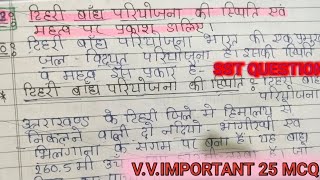 टिहरी बाँध परियोजना की स्थिति एवं
महत्व पर प्रकाश डालिए।
टिहरी बाँध परियोजना भारत की एक प्रमुख
जल - विद्युत परियोजना है। इसकी स्थिति
व महत्व इस प्रकार है-
SST QUESTION
टिहरी बाँध परियोजना की स्थिति :
परियोजना
उत्तराखण्ड के टिहरी जिले में हिमालय
निकलने वाली दो नदियों - भागीरथी एवं
भिलंगाना के संगम पर बना है। यह बाँध
260.5 मी
V.V.IMPORTANT 25 MCQ